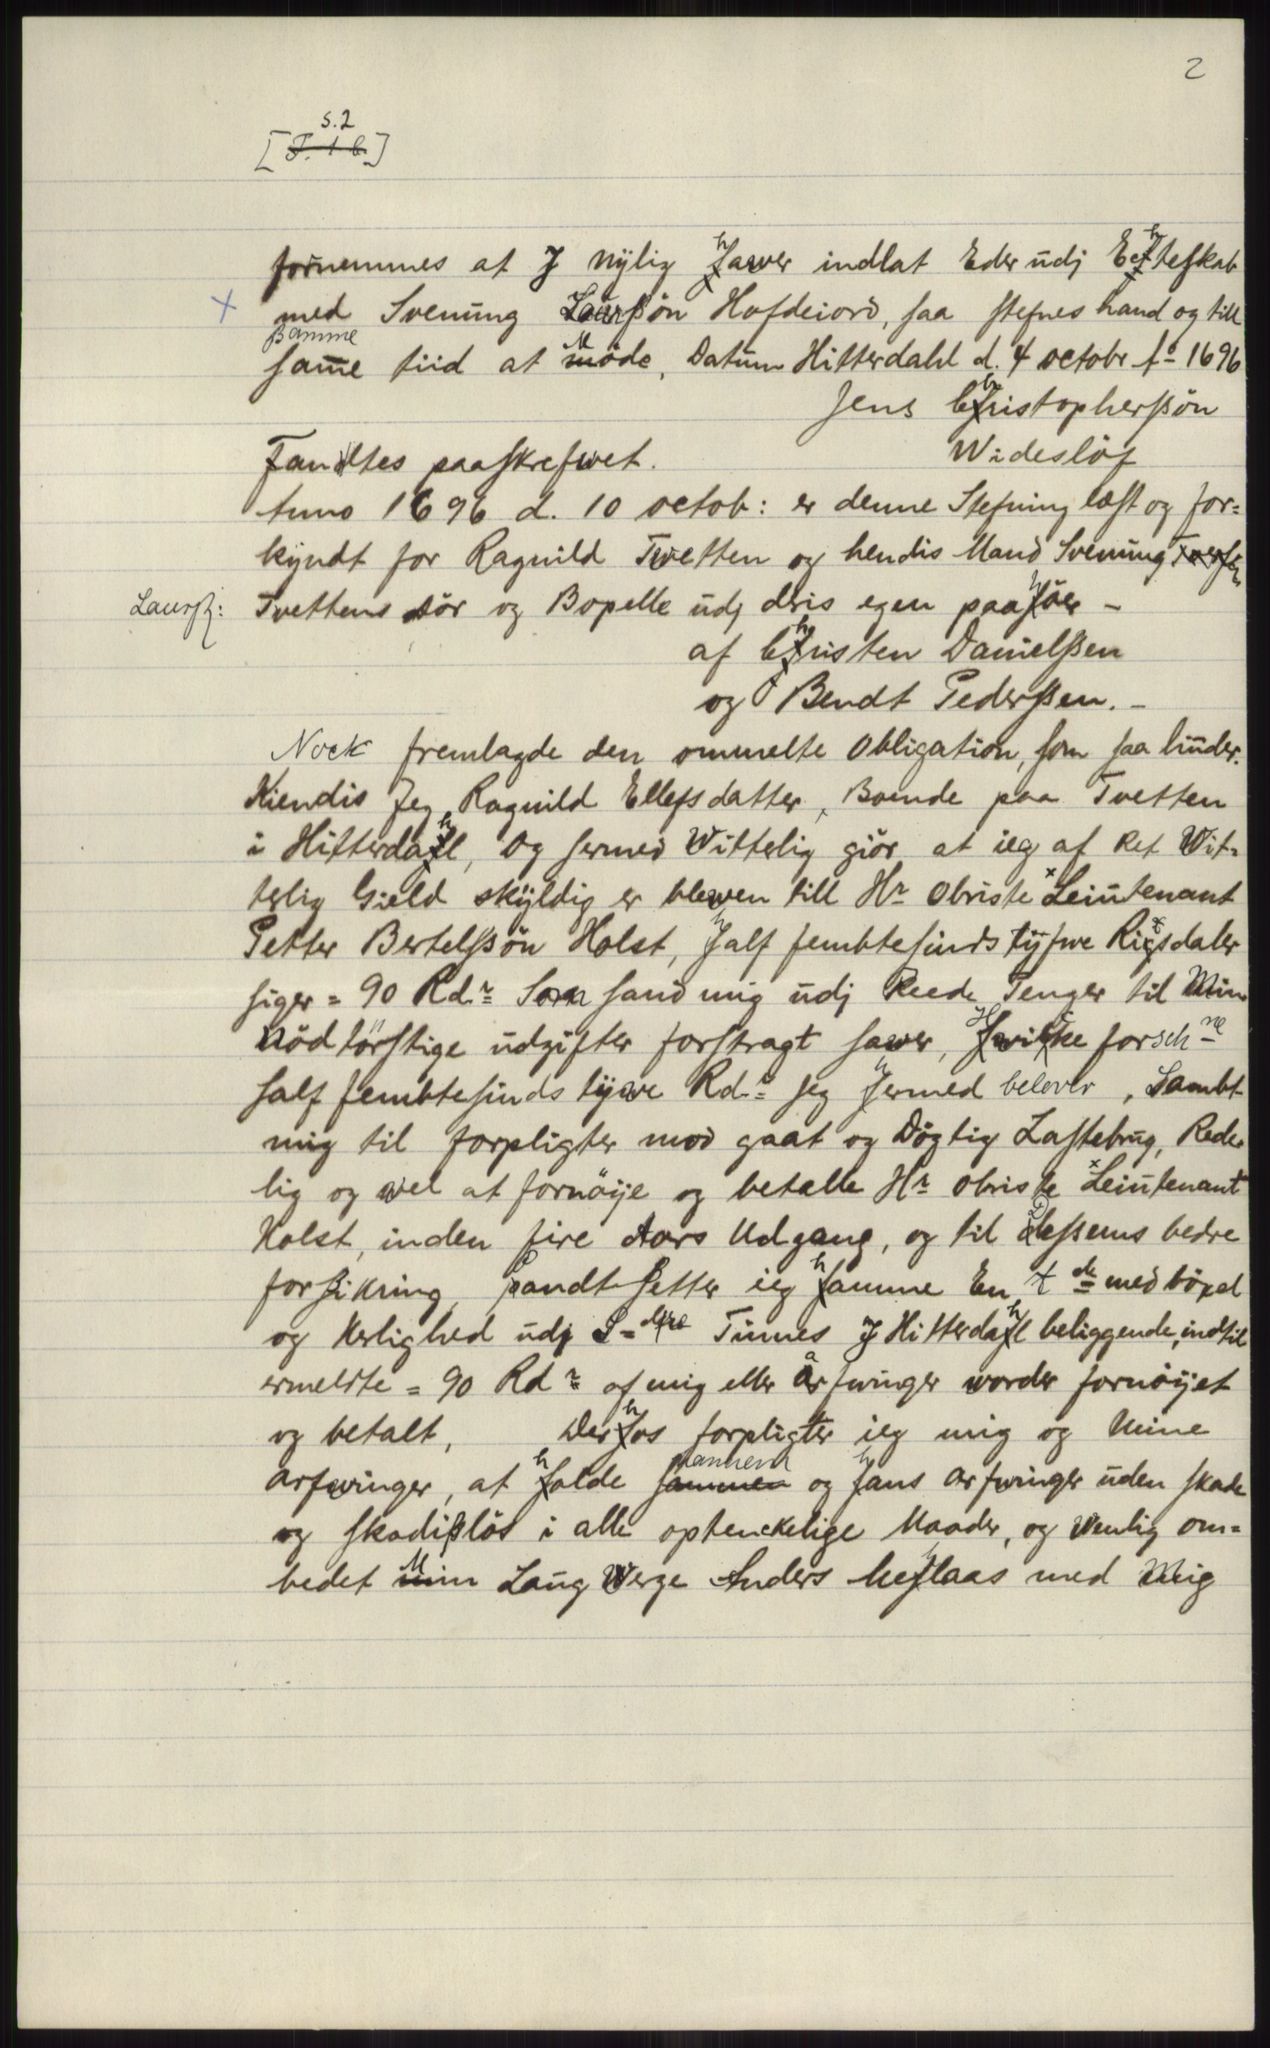 2
s.2
[F. 1 b.]
fornemmes at J nÿlig hawer indlat Eder udj Ecteskab
med Svenung Laurßön Hofdeiord, saa stefnes hand og till
Samme tiid at Möde, Datum Hitterdahl d. 4 octobr Ao 1696
Jens Christopherßön
Wideslöf
Fandtes paaskrefwet.
Anno 1696 d. 10 octob: er denne Stefning læst og for=
kyndt for Ragnild Twetten og hendis Mand Svenung
Laurß: Tvettens dör og Bopelle udj dris egen paahöer –
af Christen Danielßen
og Bendt Pederßen. –
Nock fremlagde den ommelte Obligation, som saa liuder.
Kiendis Jeg Ragnild Ellefsdatter, Boende paa Tvetten
i Hitterdahl, Og hermed Witterlig giör at ieg af Ret Wit=
terlig Gield skÿldig er blewen till Hr Obriste Leiutenant
Petter Bertelßön Holst, half fembtesinds tÿfwe Rixdaler
siger = 90 Rdr Som hand mig udj Reede Penger til Min
Nödtörftige udgifter forstragt hawer, Hwilke forschne
half fembtesinds tÿwe Rdr Jeg hermed belover, Sambt
mig til forpligter mod gaat og Dögtig Lastebrug, Rede
lig og wel at fornöije og betalle Hr Obriste Leiutenant
Holst, inden fire Aars Udgang, og til Deßsens bedre
forsikring, pandtsetter ieg hamme En t de med böxel
og Herlighed udj Tinnes J Hitterdahl beliggende, indtil
ermelte = 90 Rdr af mig eller arfwinger worder fornöijet
og betalt, Derhos forpligter ieg mig og Mine
arfwinger, at holde hannem og hans arfwinger uden skade
og skadißlös i alle optenckelige Maader, og Wenlig om=
bedet Min Laug Werge Anders Mehlaas med Mig